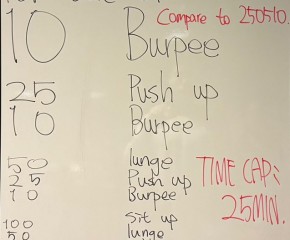 10 Burpee
Compare to 250510.
25 Push up
10 Burpee
50 lunge
25 Push up
10 Burpee
TIME CAP:
25MIN.
100 sit up
50 lunge